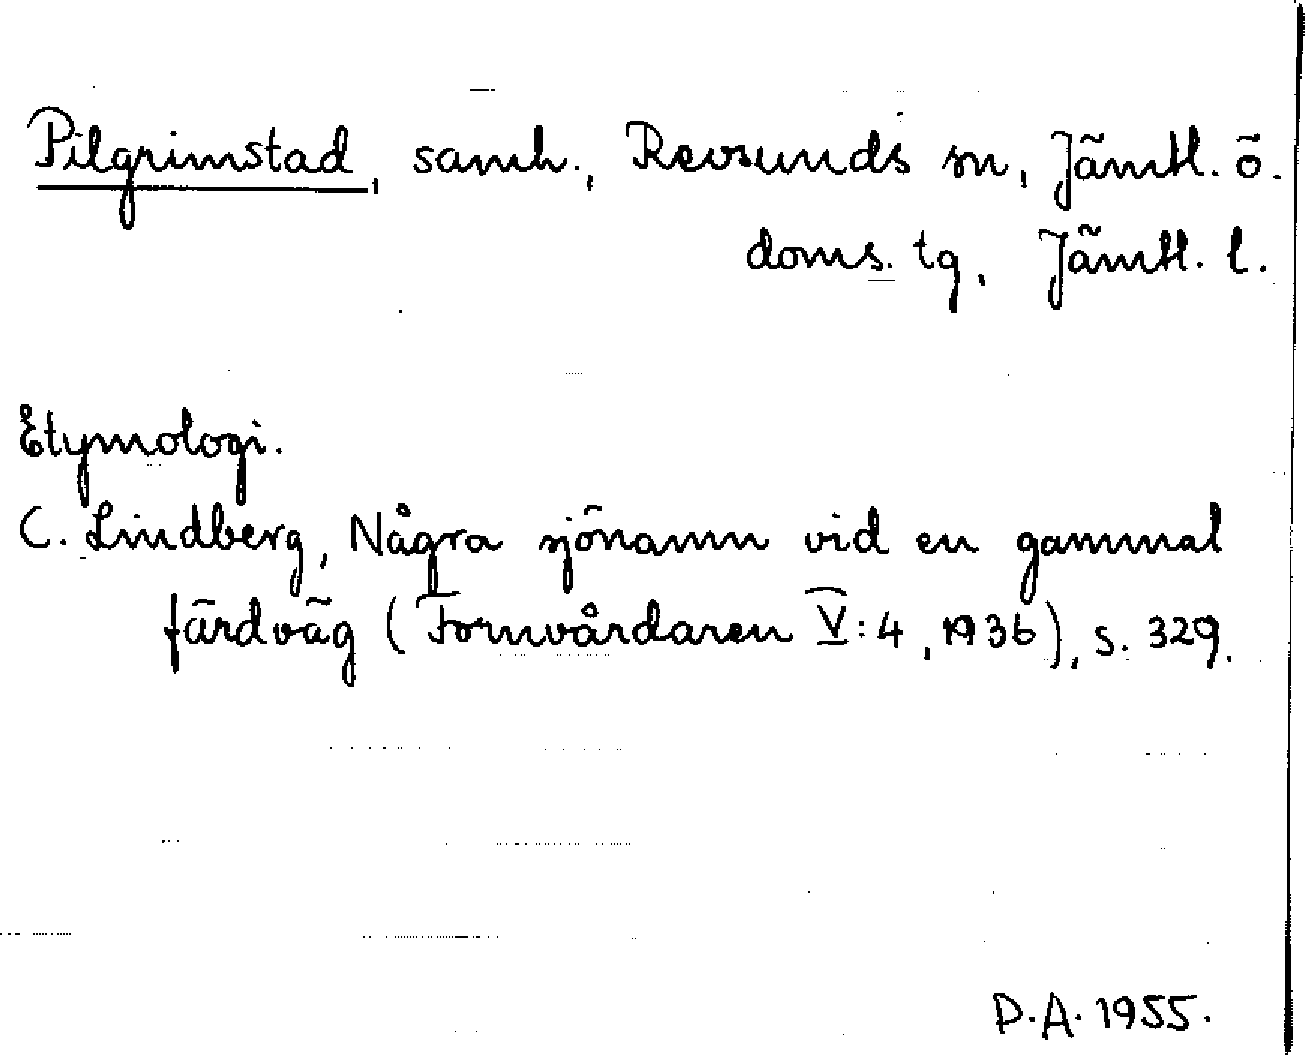 Pilgrimstad, samh., Revsunds sn, Jämtl. ö.
doms. tg, Jämtl. l.
Etymologi.
C. Lindberg, Några sjönamn vid en gammal
färdväg (Fornvårdaren V:4, 1936), s. 329.
D.A. 1955.